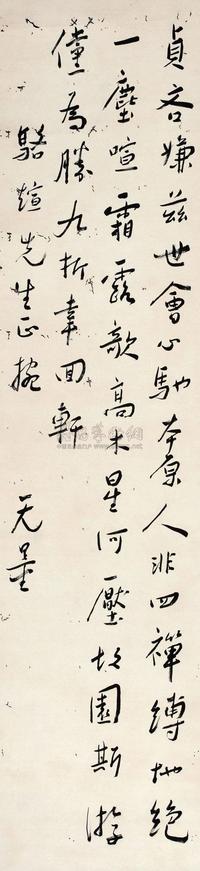 貞吝嫌茲世會心馳本原人非四禪縛地絕
一塵喧霜露欹高木星河壓故園斯游
儻為勝九折幸回軒
駱煊先生正捥
无量